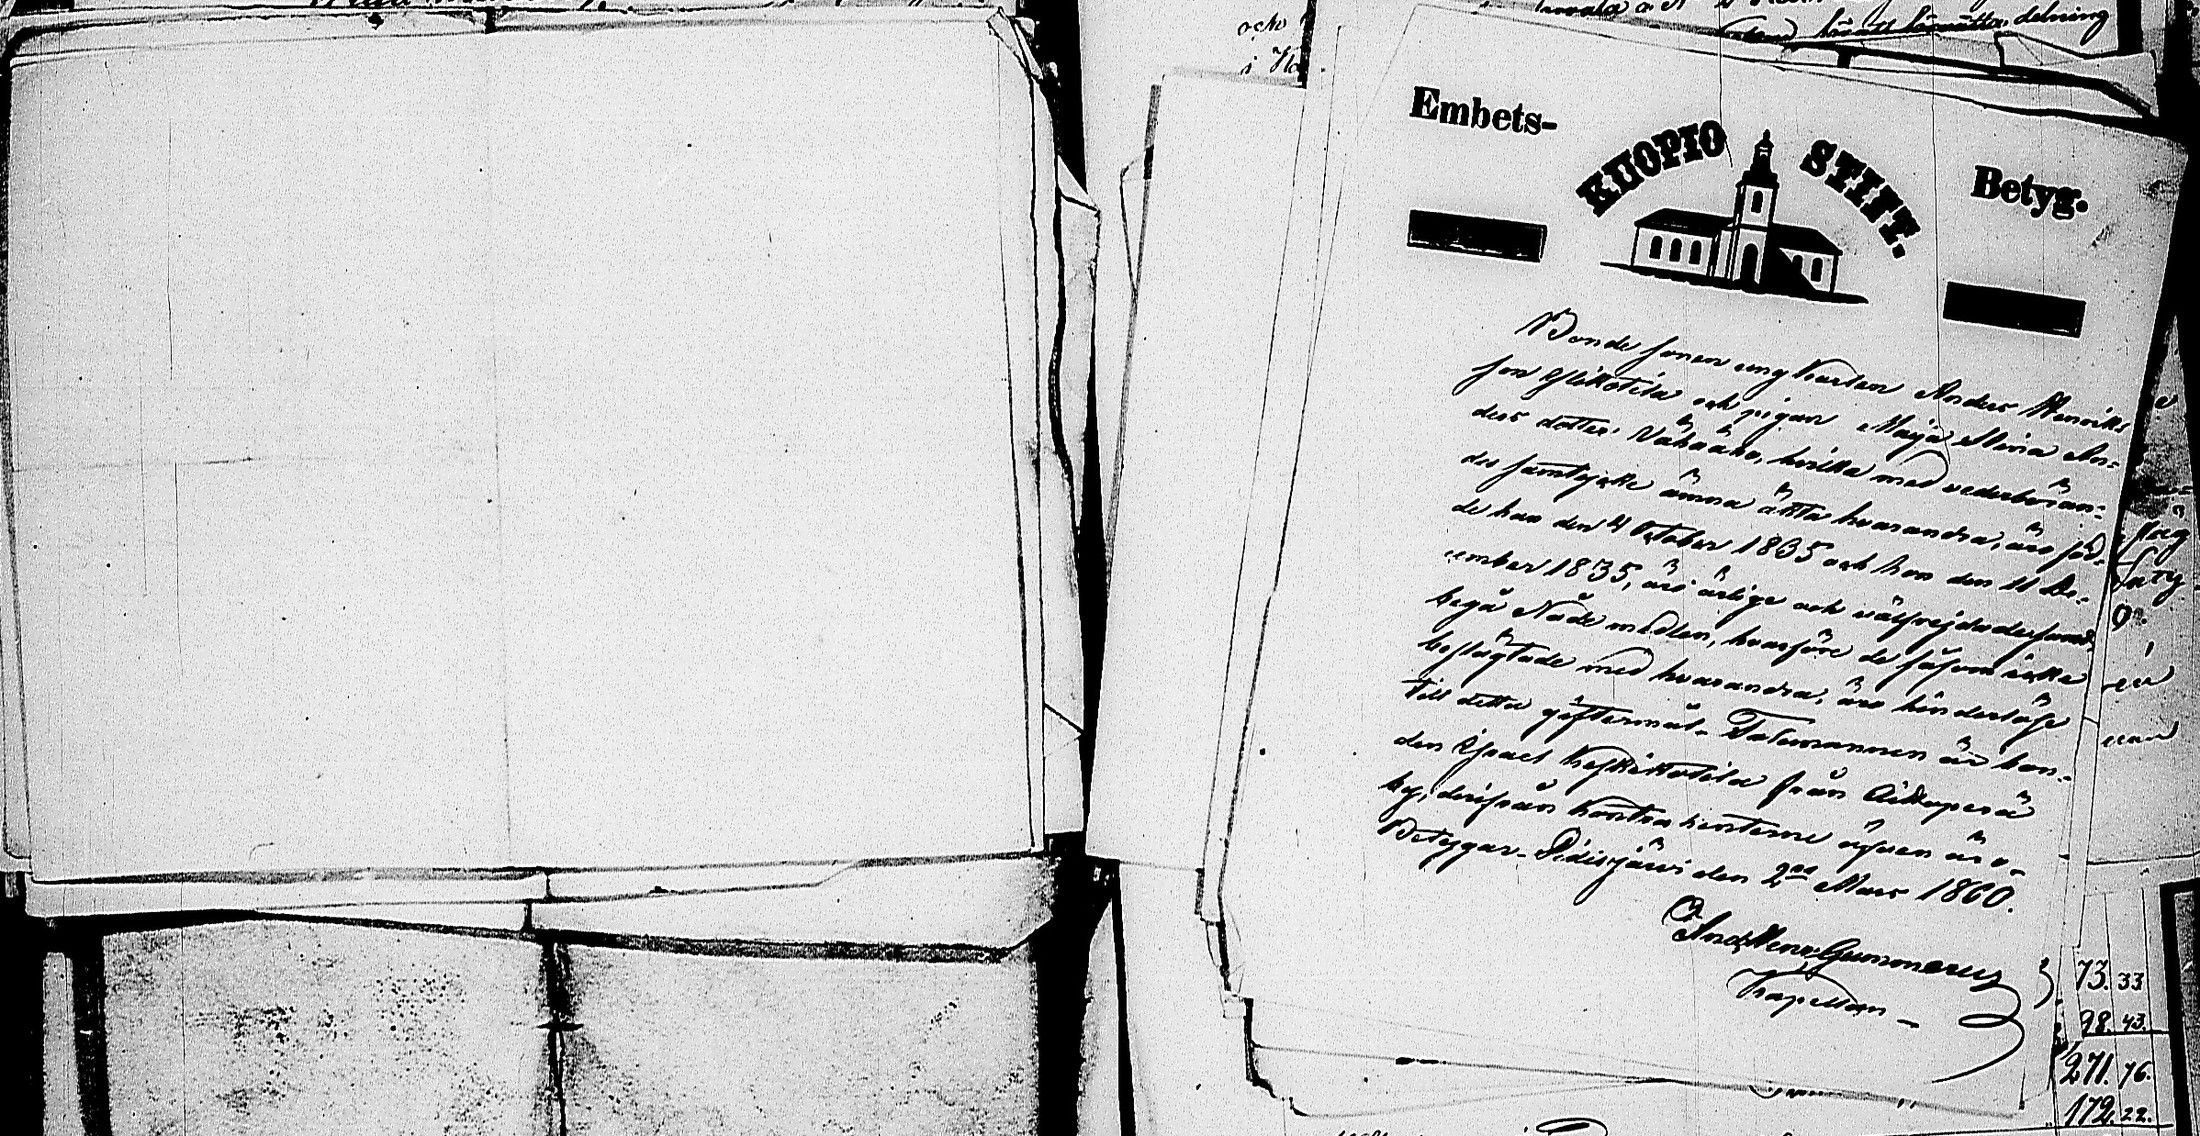 och
delning
Embets-
KUOPIO STIFT.
Betyg.
Bonde sonen ungkarlen Anders Henriks
son och pigan Maja Stina An-
ders dotter Vähäaho, hvilka med vederböran-
des samtycke ämna äkta hvarandra, äro föd-
de han den 4 October 1835 och hon den 11 De-
cember 1835, äro ärlige och välfrejdade samt
begå Nådemedlen, hvarföre de såsom icke
beslägtade med hvarandra, äro hinderlöse
till detta giftermål. Talemannen är bon-
den Isaac Keskikotila från Aittoperä
by, derifrån kontrahenterne äfven äro.
Betygar. Pidisjärvi den 2ra Mars 1860.
And. Henr. Gummerus
Kapellan
73. 33
98. 43.
271. 76.
172. 22.